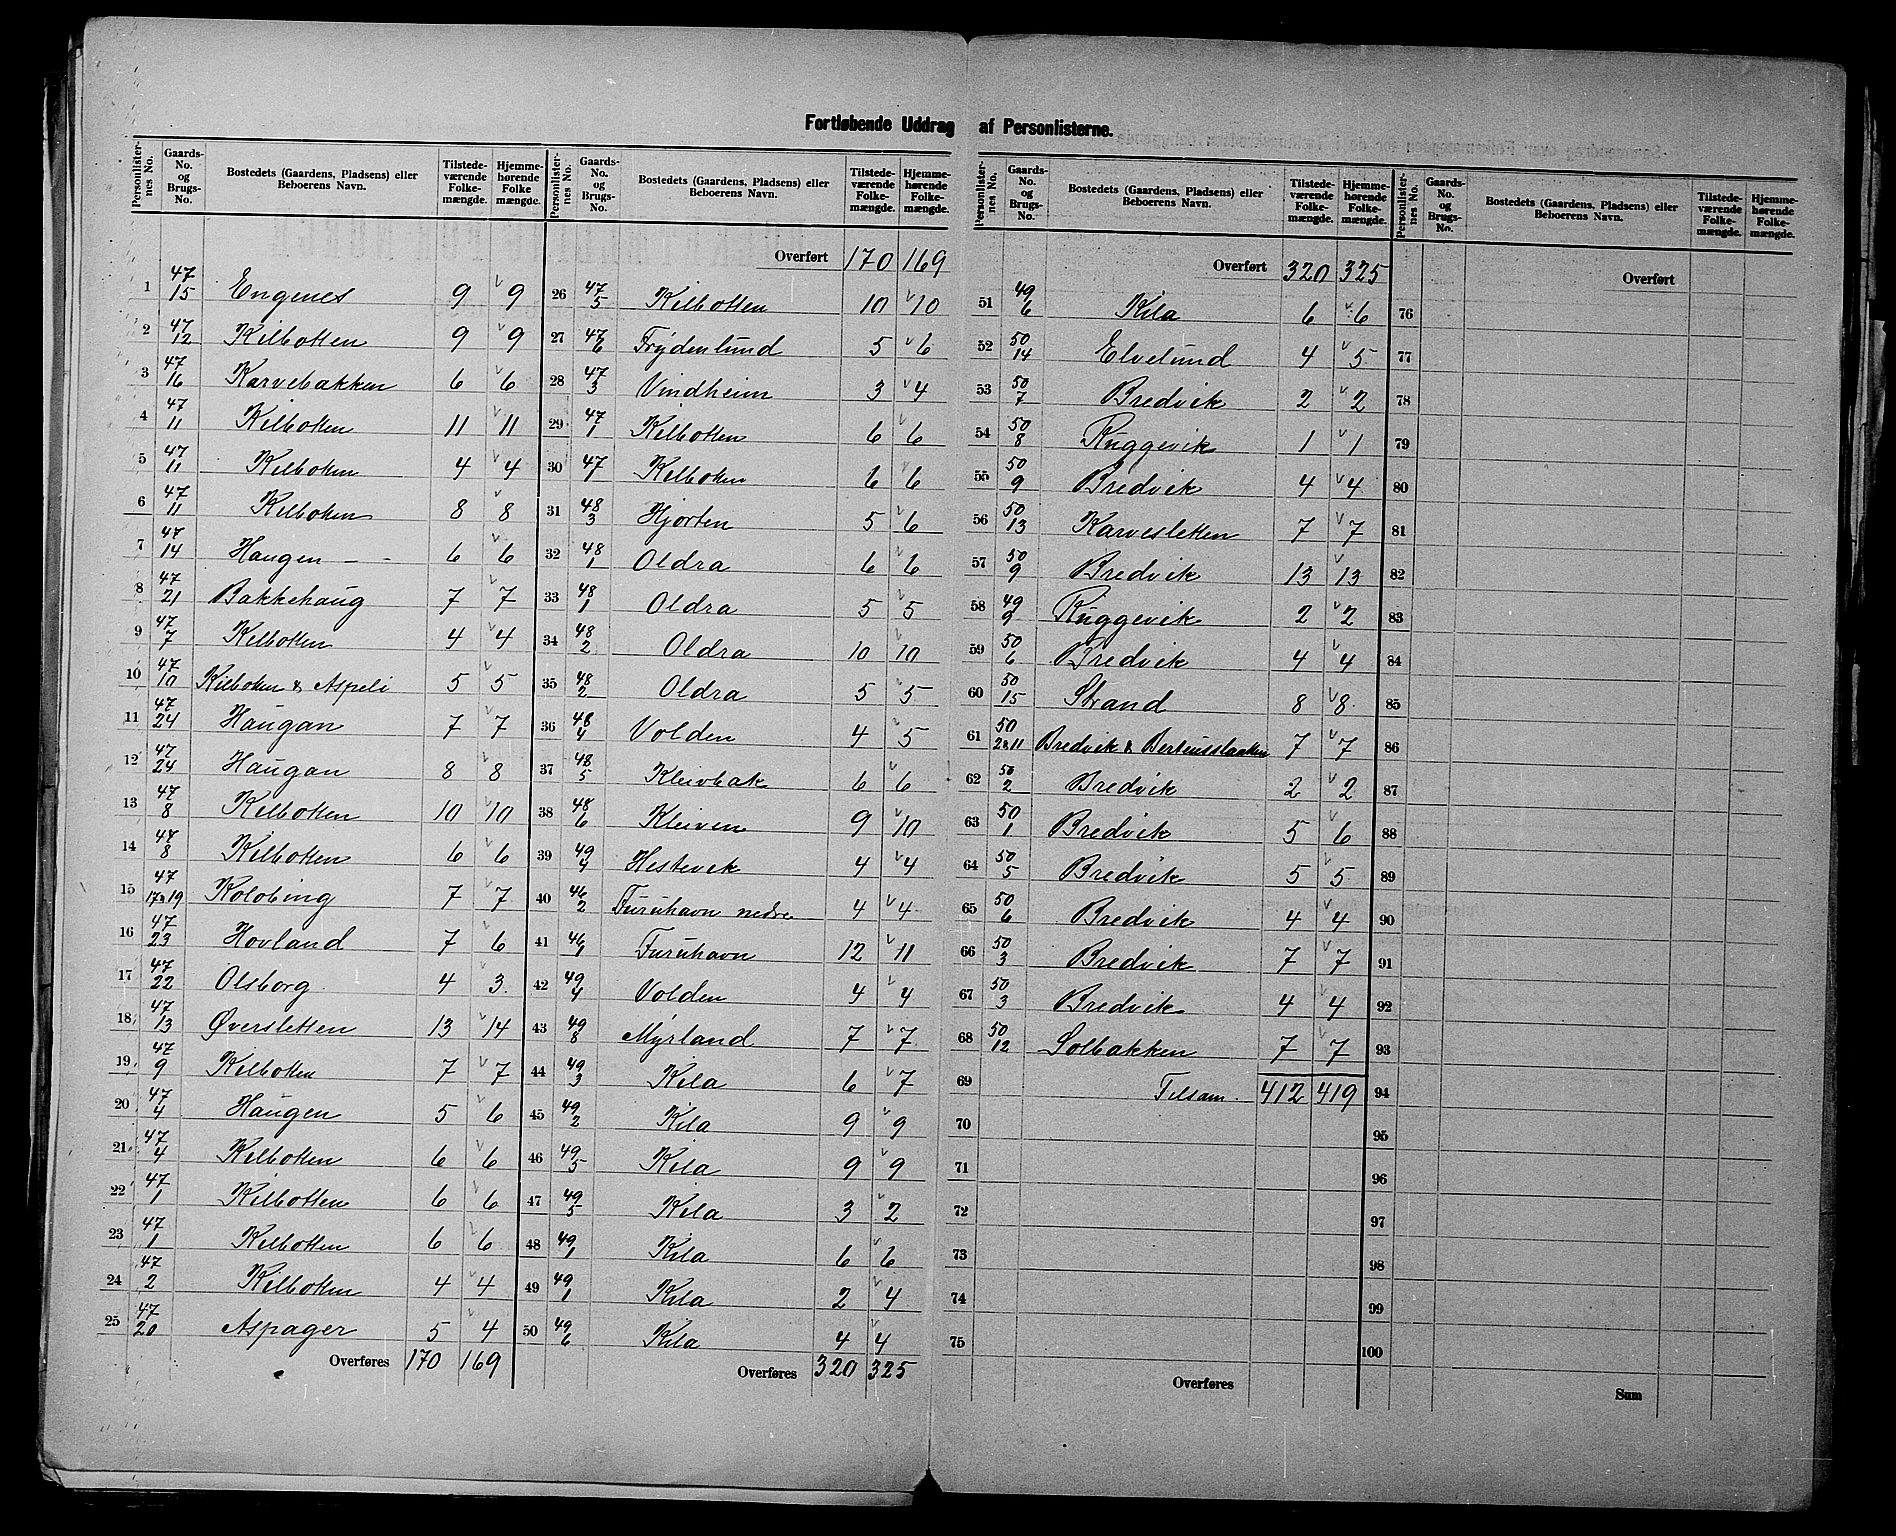 Fortløbende Uddrag af Personlisterne.
Personlister-nes No. | Gaards-No. og Brugs-No. | Bostedets (Gaardens, Pladsens) eller Beboerens Navn. | Tilstede-værende Folke-mængde. | Hjemme-hørende Folke mængde.
1 47/15 Engenes 9 v 9
2 47/12 Kilbotten 9 v 9
3 47/16 Karvebakken 6 v 6
4 47/11 Kilbotten 11 v 11
5 47/11 Kilbotten 4 v 4
6 47/11 Kilbotten 8 v 8
7 47/14 Haugen 6 v 6
8 47/21 Bakkehaug 7 v 7
9 47/7 Kilbotten 4 v 4
10 47/10 Kilbotten & Aspeli 5 v 5
11 47/24 Haugan 7 v 7
12 47/24 Haugan 8 v 8
13 47/8 Kilbotten 10 v 10
14 47/8 Kilbotten 6 v 6
15 47/17&19 Kolobing 7 v 7
16 47/23 Hovland 7 v 6
17 47/22 Olsborg 4 v 3
18 47/13 Øversletten 13 v 14
19 47/9 Kilbotten 7 v 7
20 47/4 Haugen 5 v 6
21 47/4 Kilbotten 6 v 6
22 47/1 Kilbotten 6 v 6
23 47/1 Kilbotten 6 v 6
24 47/2 Kilbotten 4 v 4
25 47/20 Aspager 5 v 4
Overføres 170 169
Personlister-nes No. | Gaards-No. og Brugs-No. | Bostedets (Gaardens, Pladsens) eller Beboerens Navn. | Tilstede-værende Folke-mængde. | Hjemme-hørende Folke-mængde.
Overført 170 169
26 47/5 Kilbotten 10 v 10
27 47/6 Frydenlund 5 v 6
28 47/3 Vindheim 3 v 4
29 47/1 Kilbotten 6 v 6
30 47 Kilbotten 6 v 6
31 48/3 Hjorten 5 v 6
32 48/1 Oldra 6 v 6
33 48/1 Oldra 5 v 5
34 48/2 Oldra 10 v 10
35 48/2 Oldra 5 v 5
36 48/4 Volden 4 v 5
37 48/5 Kleivbak 6 v 6
38 48/6 Kleiven 9 v 10
39 49/4 Hestevik 4 v 4
40 46/2 Furuhavn nedre 4 v 4
41 46/1 Furuhavn 12 v 11
42 49/4 Volden 4 v 4
43 49/8 Myrland 7 v 7
44 49/3 Kila 6 v 7
45 49/2 Kila 9 v 9
46 49/5 Kila 9 v 9
47 49/5 Kila 3 v 2
48 49/1 Kila 6 v 6
49 49/1 Kila 2 v 4
50 49/6 Kila 4 v 4
Overføres 320 325
Personlister-nes No. | Gaards-No. og Brugs-No. | Bostedets (Gaardens, Pladsens) eller Beboerens Navn. | Tilstede-værende Folke-mængde. | Hjemme-hørende Folke-mængde.
Overført 320 325
51 49/6 Kila 6 v 6
52 50/14 Elvelund 4 v 5
53 50/7 Bredvik 2 v 2
54 50/8 Ruggevik 1 v 1
55 50/9 Bredvik 4 v 4
56 50/13 Karvesletten 7 v 7
57 50/9 Bredvik 13 v 13
58 49/9 Ruggevik 2 v 2
59 50/6 Bredvik 4 v 4
60 50/15 Strand 8 v 8
61 50/2&11 Bredvik & Berteusslaaken 7 v 7
62 50/2 Bredvik 2 v 2
63 50/1 Bredvik 5 v 6
64 50/5 Bredvik 5 v 5
65 50/6 Bredvik 4 v 4
66 50/3 Bredvik 7 v 7
67 50/3 Bredvik 4 v 4
68 50/12 Solbakken 7 v 7
69 Tilsam. 412 419
70
71
72
73
74
75
Overføres
Personlister-nes No. | Gaards-No. og Brugs-No. | Bostedets (Gaardens, Pladsens) eller Beboerens Navn. | Tilstede-værende Folke-mængde. | Hjemme-hørende Folke-mængde.
Overført
76
77
78
79
80
81
82
83
84
85
86
87
88
89
90
91
92
93
94
95
96
97
98
99
100
Sum